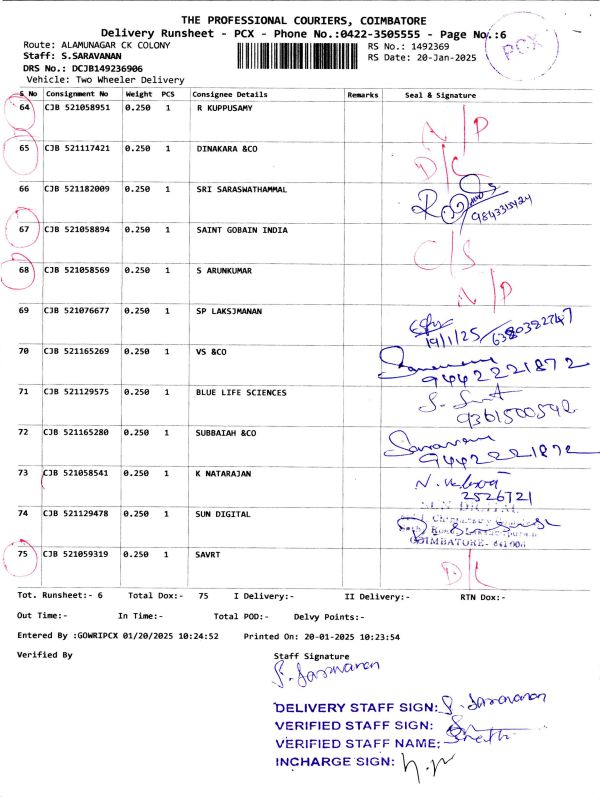 THE PROFESSIONAL COURIERS, COIMBATORE
Delivery Runsheet - PCX - Phone No.:0422-3505555 - Page No.:6
PCX
Route: ALAMUNAGAR CK COLONY
RS No.: 1492369
Staff: S.SARAVANAN
RS Date: 20-Jan-2025
DRS No.: DCJB149236906
Vehicle: Two Wheeler Delivery
S No Consignment No Weight PCS Consignee Details Remarks Seal & Signature
64 CJB 521058951 0.250 1 R KUPPUSAMY
A/P
65 CJB 521117421 0.250 1 DINAKARA &CO
D/C
66 CJB 521182009 0.250 1 SRI SARASWATHAMMAL
67 CJB 521058894 0.250 1 SAINT GOBAIN INDIA
C/S
68 CJB 521058569 0.250 1 S ARUNKUMAR
A/P
69 CJB 521076677 0.250 1 SP LAKSJMANAN
19/1/25/6380392747
70 CJB 521165269 0.250 1 VS &CO
9442221872
71 CJB 521129575 0.250 1 BLUE LIFE SCIENCES
9361500592
72 CJB 521165280 0.250 1 SUBBAIAH &CO
9442221872
73 CJB 521058541 0.250 1 K NATARAJAN
2526721
74 CJB 521129478 0.250 1 SUN DIGITAL
COIMBATORE
75 CJB 521059319 0.250 1 SAVRT
D/C
Tot. Runsheet:- 6 Total Dox:- 75 I Delivery:- II Delivery:- RTN Dox:-
Out Time:- In Time:- Total POD:- Delvy Points:-
Entered By :GOWRIPCX 01/20/2025 10:24:52 Printed On: 20-01-2025 10:23:54
Verified By Staff Signature
S. Saravanan
DELIVERY STAFF SIGN: S. Saravanan
VERIFIED STAFF SIGN:
VERIFIED STAFF NAME:
INCHARGE SIGN: